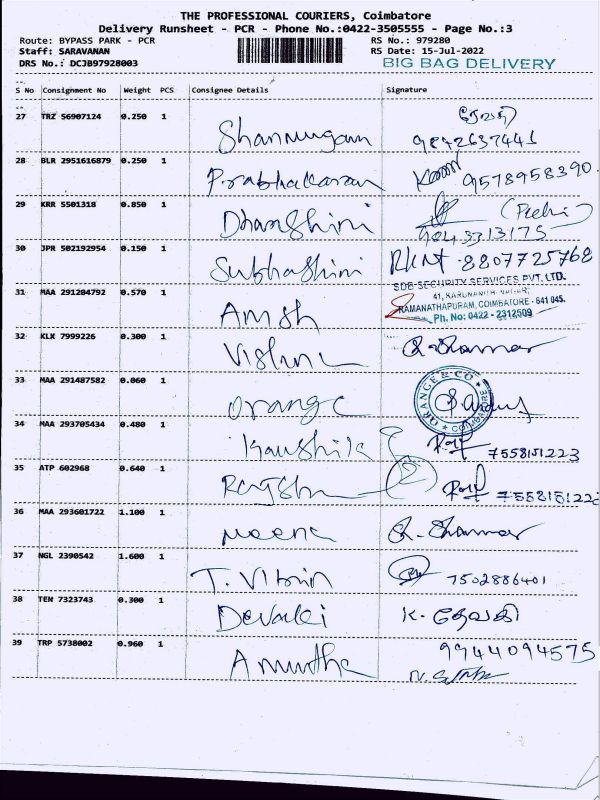 THE PROFESSIONAL COURIERS, Coimbatore
Delivery Runsheet - PCR - Phone No.:0422-3505555 - Page No.:3
Route: BYPASS PARK - PCR RS No.: 979280
Staff: SARAVANAN RS Date: 15-Jul-2022
DRS No.: DCJB97928003 BIG BAG DELIVERY
S No Consignment No Weight PCS Consignee Details Signature
27 TRZ 56907124 0.250 1 Shanmugam ரேவதி
9842637441
28 BLR 2951616879 0.250 1 Prabhakaran 9578958390
29 KRR 5501318 0.850 1 Dhanshini
9843313175
30 JPR 502192954 0.150 1 Subhashini RKNT 8807725768
SDB SECURITY SERVICES PVT. LTD.
31 MAA 291204792 0.570 1 Amsh 41, KARUNANITHI NAGAR,
RAMANATHAPURAM, COIMBATORE - 641 045.
Ph. No: 0422 - 2312509
32 KLK 7999226 0.300 1 Vishnu
33 MAA 291487582 0.060 1 Orange ORANGE & CO COIMBATORE
34 MAA 293705434 0.480 1 Kaushik 7558151223
35 ATP 602968 0.640 1 755815122
36 MAA 293601722 1.100 1 Meena
37 NGL 2390542 1.600 1 T. Vibin 7502886401
38 TEN 7323743 0.300 1 Devaki K. தேவகி
39 TRP 5738002 0.960 1 Amutha 9944094575